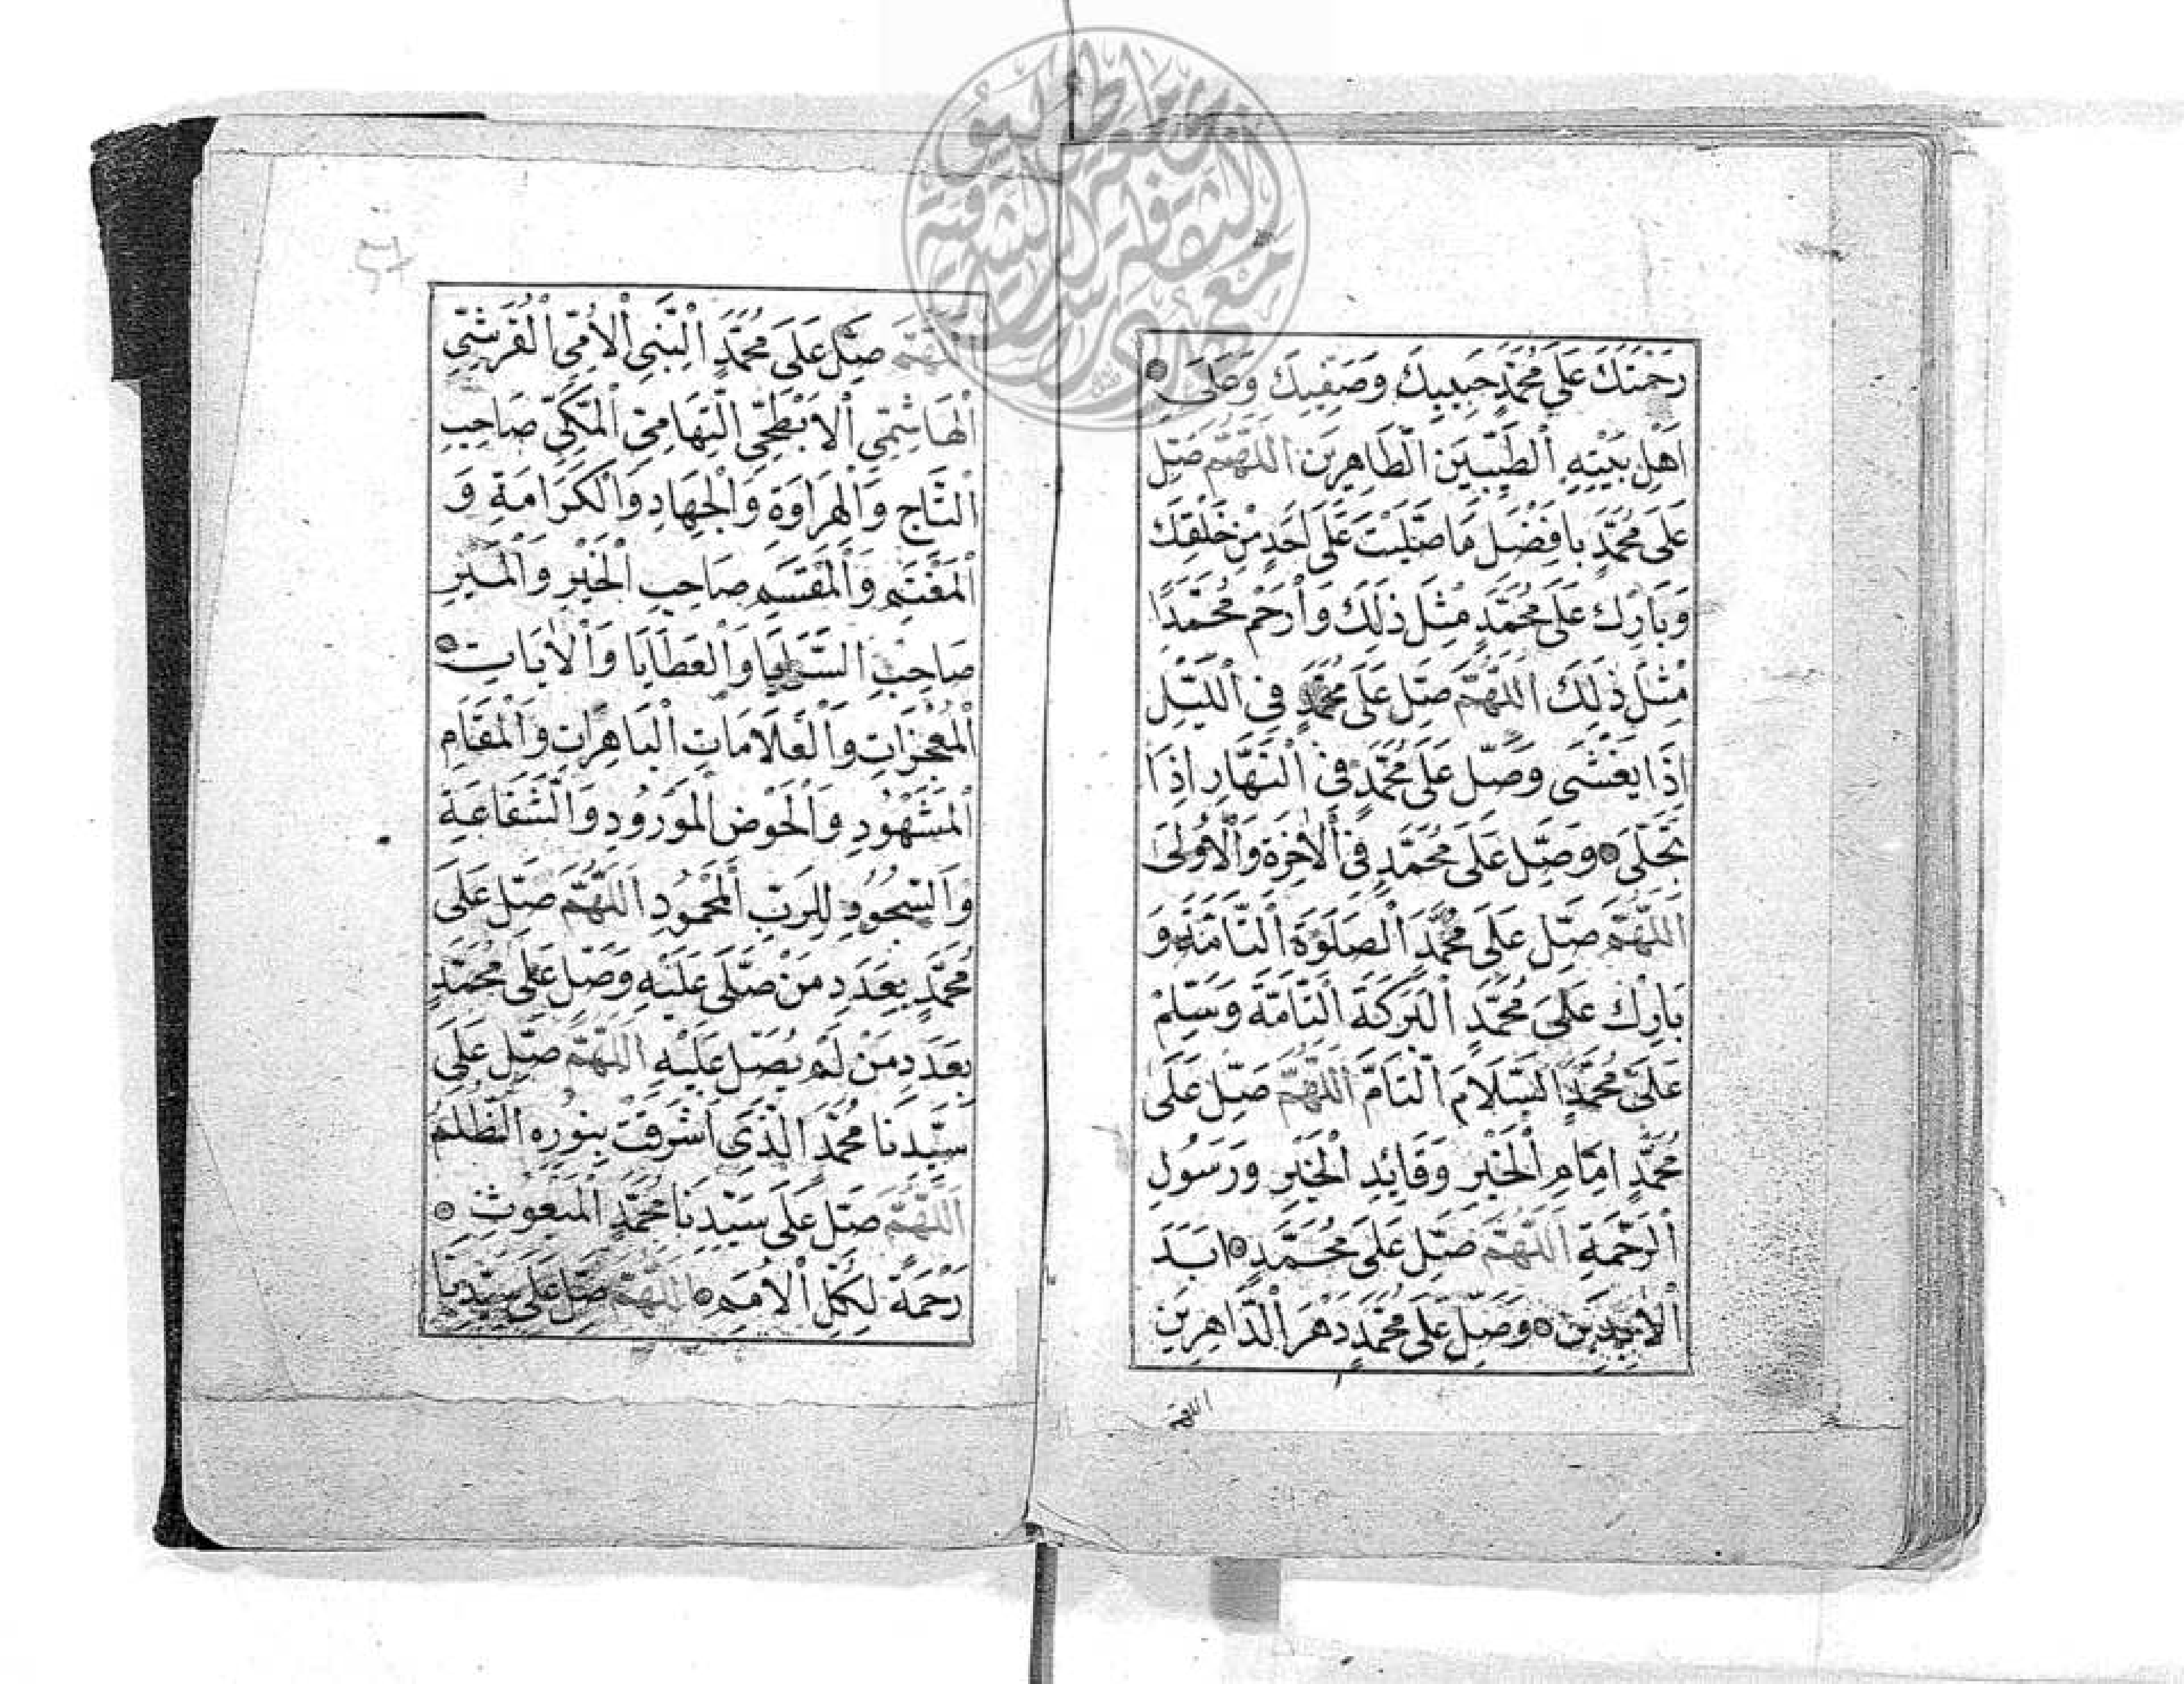 رَحْمَتَكَ عَلَى مُحَمَّدٍ حَبِيبِكَ وَصَفِيِّكَ وَعَلَى
اَهْلِ بَيْتِهِ الْطَيِّبِينَ الْطَّاهِرِينَ اَللّٰهُمَّ صَلِّ
عَلَى مُحَمَّدٍ بِاَفْضَلِ مَا صَلَّيْتَ عَلَى اَحَدٍ مِنْ خَلْقِكَ
وَبَارِكْ عَلَى مُحَمَّدٍ مِثْلَ ذَلِكَ وَارْحَمْ مُحَمَّدًا
مِثْلَ ذٰلِكَ اَللّٰهُمَّ صَلِّ عَلَى مُحَمَّدٍ فِي الْلَيْلِ
اِذَا يَغْشَى وَصَلِّ عَلَى مُحَمَّدٍ فِي الْنَهَارِ اِذَا
تَجَلَّى وَصَلِّ عَلَى مُحَمَّدٍ فِي اْلاٰخِرَةِ وَاْلاُوْلَى
اَللّٰهُمَّ صَلِّ عَلَى مُحَمَّدٍ الْصَلَوٰةَ الْتَّامَّةَ وَ
بَارِكْ عَلَى مُحَمَّدٍ الْبَرَكَةَ الْتَّامَّةَ وَسَلِّمْ
عَلَى مُحَمَّدٍ الْسَّلَامَ الْتَّامَّ اَللّٰهُمَّ صَلِّ عَلَى
مُحَمَّدٍ اِمَامِ الْخَيْرِ وَقَايِدِ الْخَيْرِ وَرَسُولِ
الْرَحْمَةِ اَللّٰهُمَّ صَلِّ عَلَى مُحَمَّدٍ اَبَدَ
اْلاٰبِدِينَ وَصَلِّ عَلَى مُحَمَّدٍ دَهْرَ الْدَّاهِرِينَ
اللهم
اَللّٰهُمَّ صَلِّ عَلَى مُحَمَّدٍ الْنَّبِيِّ اْلاُمِّيِّ الْقُرَشِيِّ
الْهَاشِمِيِّ اْلاَبْطَحِيِّ الْتِّهَامِيِّ الْمَكِّيِّ صَاحِبِ
الْتَّاجِ وَالْهِرَاوَةِ وَالْجِهَادِ وَالْكَرَامَةِ وَ
الْمَغْنَمِ وَالْمَقْسَمِ صَاحِبِ الْخَيْرِ وَالْمَيْرِ
صَاحِبِ الْسَّرَايَا وَالْعَطَايَا وَاْلاٰيَاتِ
الْمُعْجِزَاتِ وَالْعَلَامَاتِ الْبَاهِرَاتِ وَالْمَقَامِ
الْمَشْهُودِ وَالْحَوْضِ الْمَوْرُودِ وَالْشَّفَاعَةِ
وَالْسُّجُودِ لِلرَّبِّ الْمَحْمُودِ اَللّٰهُمَّ صَلِّ عَلَى
مُحَمَّدٍ بِعَدَدِ مَنْ صَلَّى عَلَيْهِ وَصَلِّ عَلَى مُحَمَّدٍ
بِعَدَدِ مَنْ لَمْ يُصَلِّ عَلَيْهِ اَللّٰهُمَّ صَلِّ عَلَى
سَيِّدِنَا مُحَمَّدٍ الَّذِي اَشْرَقَتْ بِنُورِهِ الْظُّلَمُ
اَللّٰهُمَّ صَلِّ عَلَى سَيِّدِنَا مُحَمَّدٍ الْمَبْعُوثِ
رَحْمَةً لِكُلِّ اْلاُمَمِ اَللّٰهُمَّ صَلِّ عَلَى سَيِّدِنَا